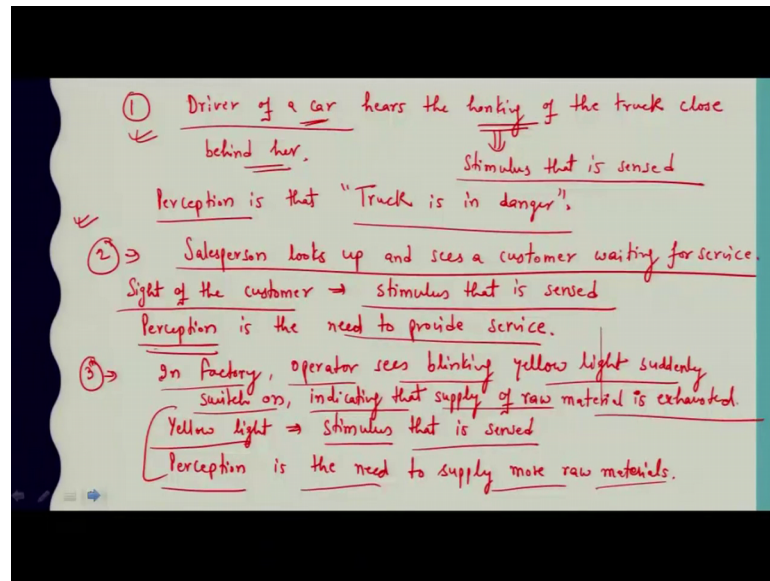 ① Driver of a car hears the honking of the truck close
behind her.
Stimulus that is sensed
Perception is that "Truck is in danger".
② ⇒ Salesperson looks up and sees a customer waiting for service.
Sight of the customer → stimulus that is sensed
Perception is the need to provide service.
③ ⇒ In factory, operator sees blinking yellow light suddenly
switch on, indicating that supply of raw material is exhausted.
Yellow light ⇒ stimulus that is sensed
Perception is the need to supply more raw materials.